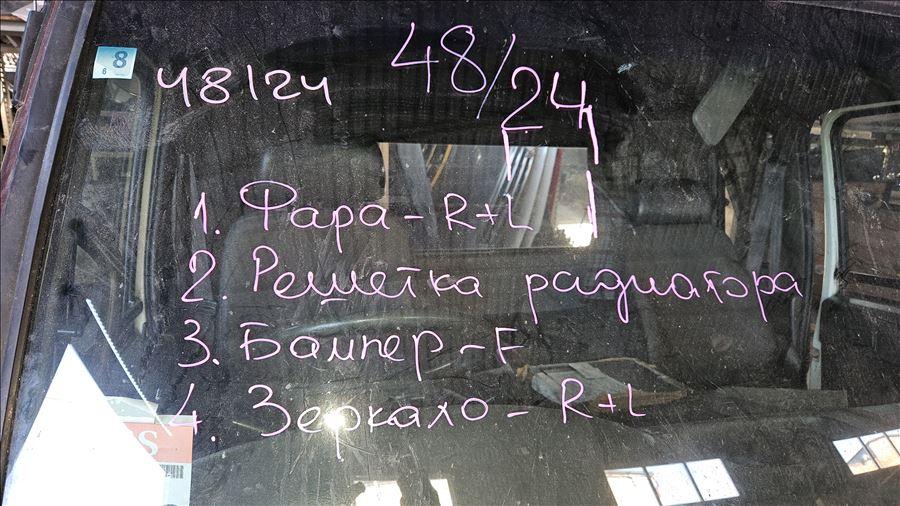 8
6
48/24
48/24
1. Фара - R+L
2. Решетка радиатора
3. Бампер - F
4. Зеркало - R+L
S